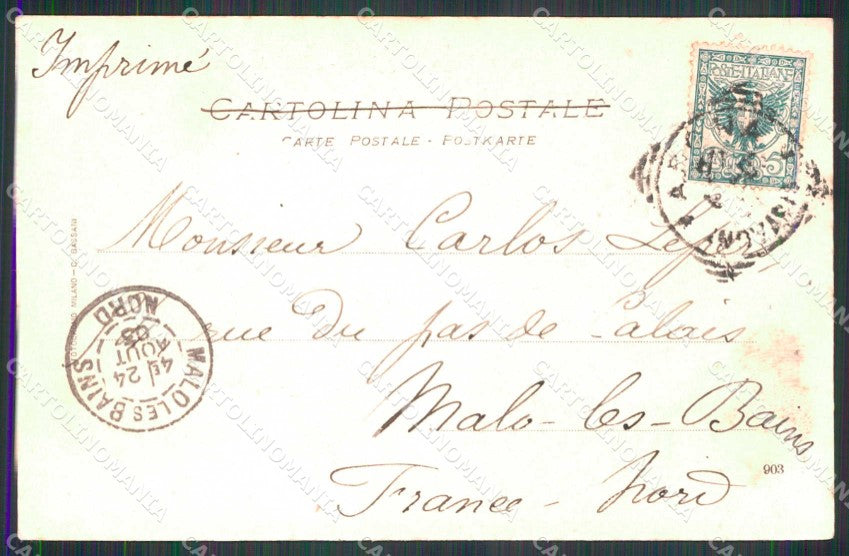 Imprimé
CARTOLINA POSTALE
CARTE POSTALE - POSTKARTE
POSTE ITALIANE
5
Monsieur Carlos
rue du pas de Calais
Malo-les-Bains
France - Nord
903
MILANO - G. BASSANI
MALO LES BAINS
NORD
4E 24
AOUT
03
CARTOLINOMANIA